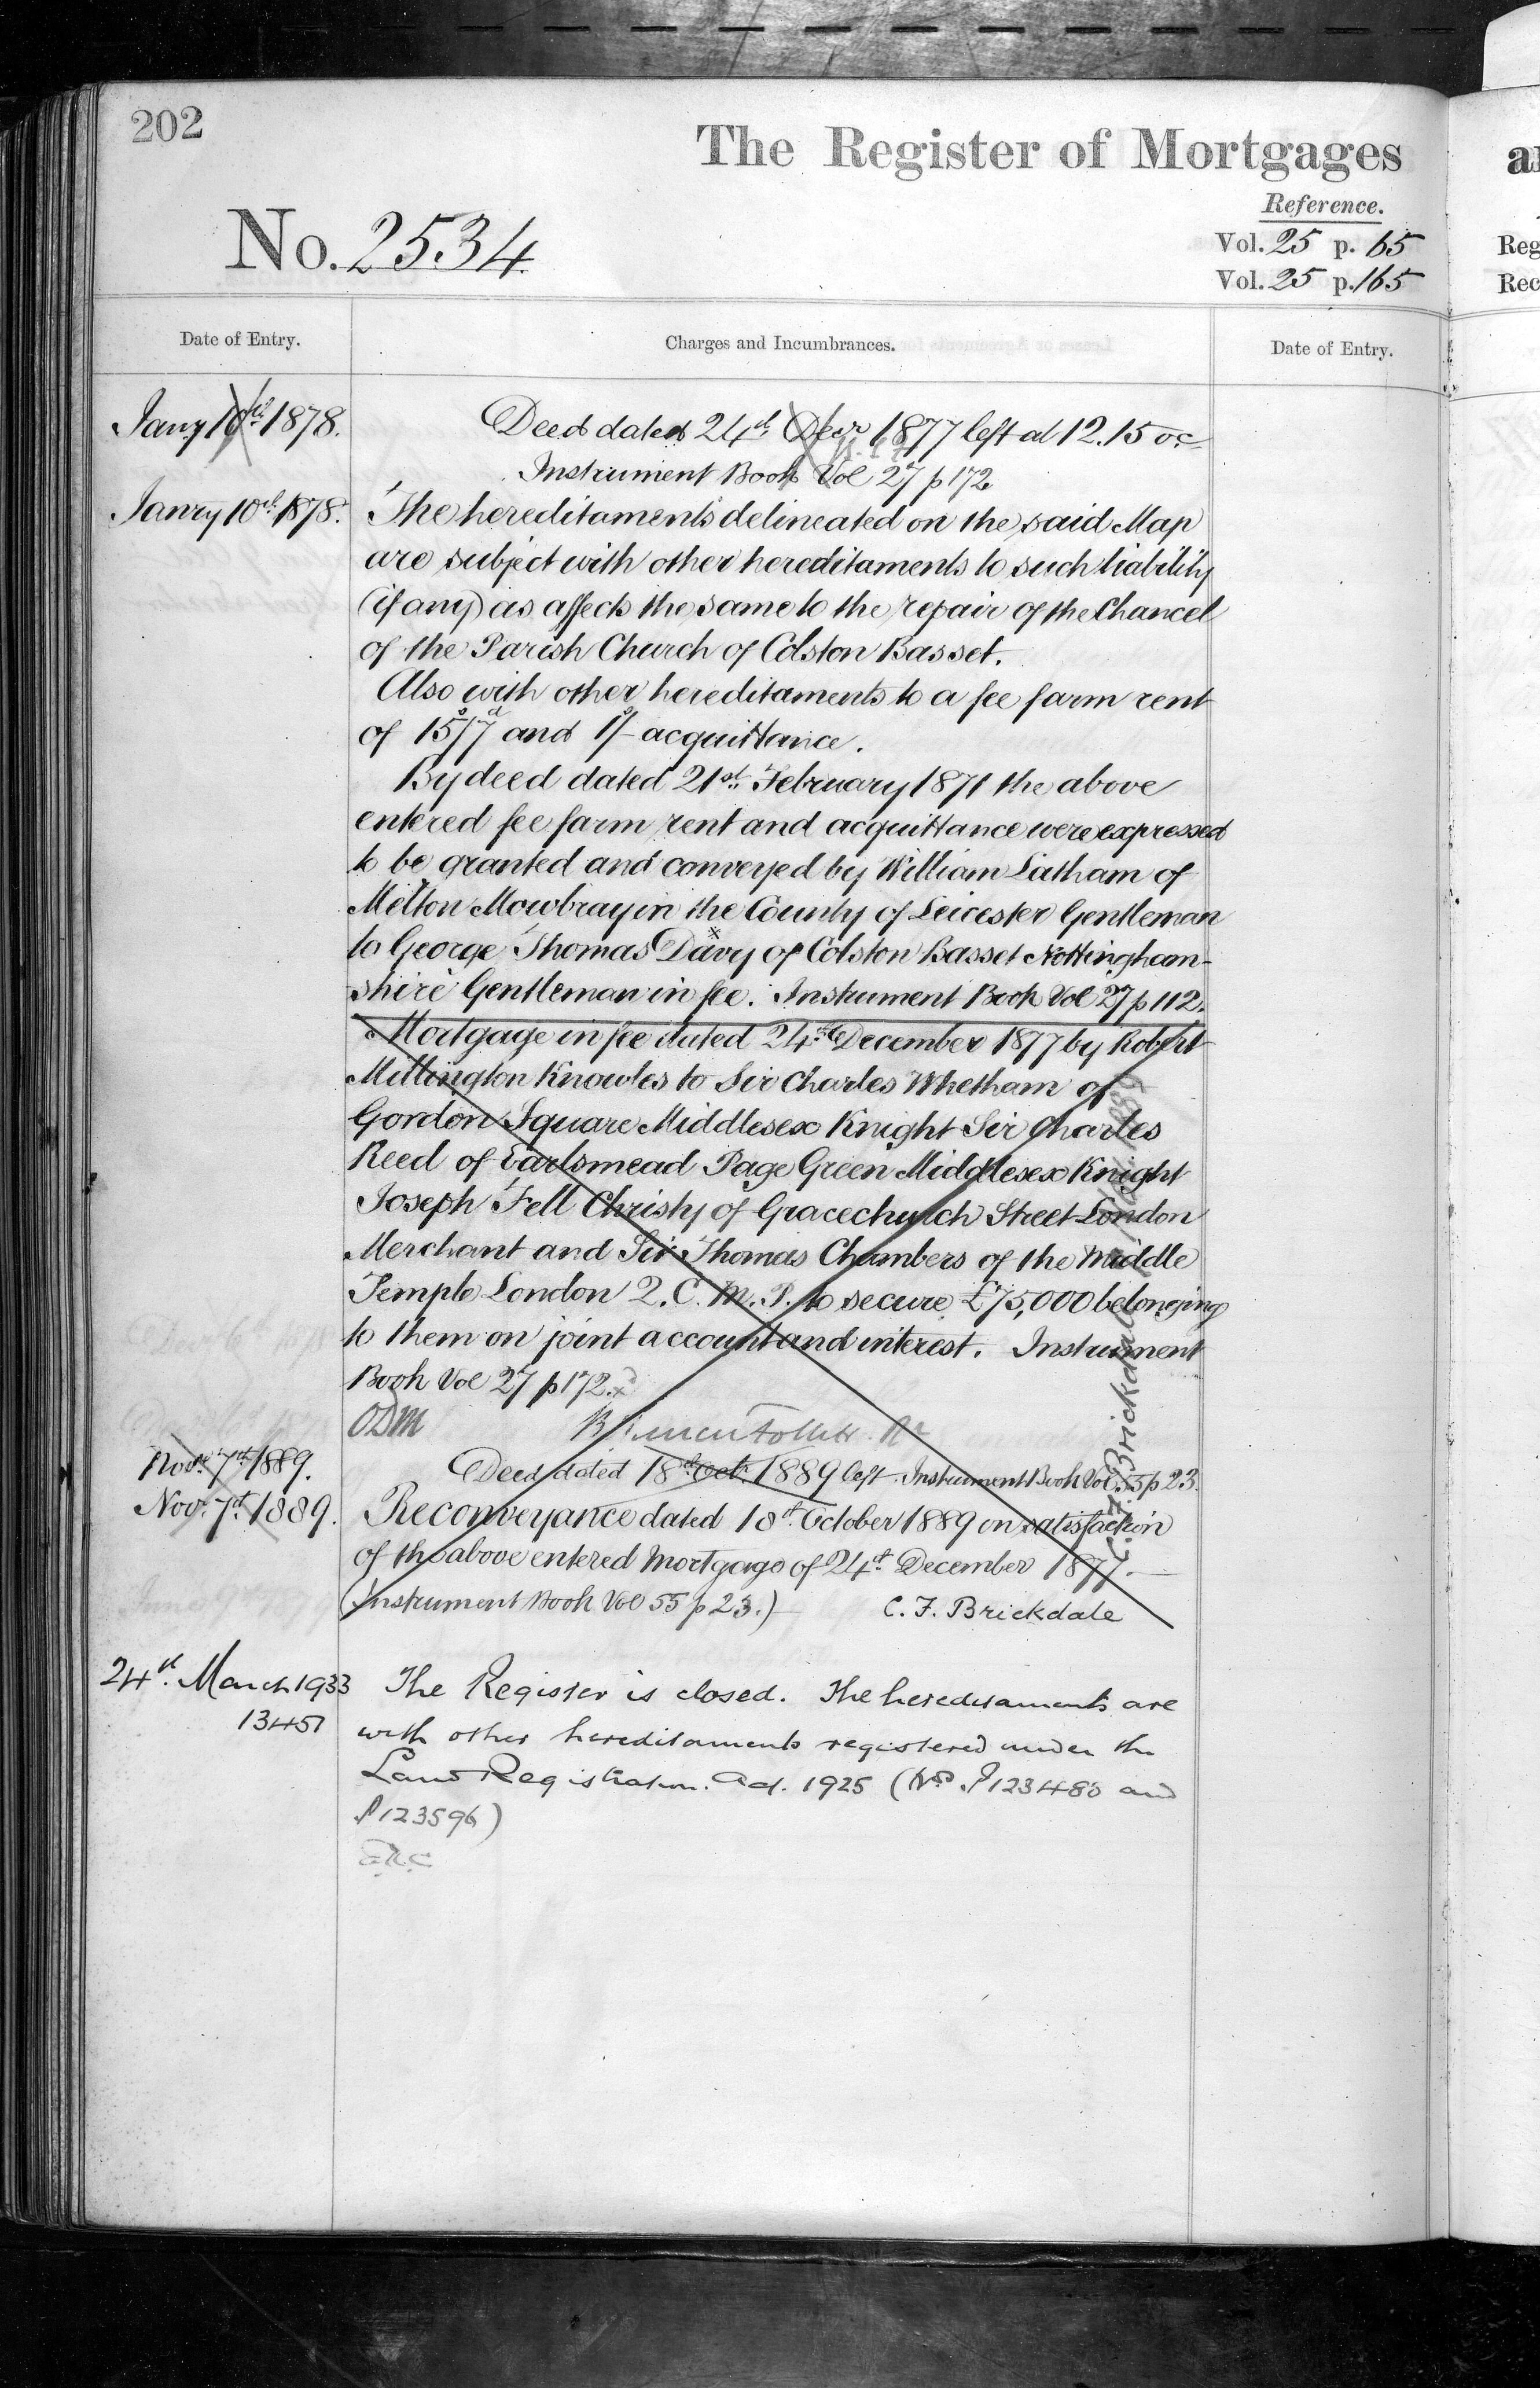 202
The Register of Mortgages
Reference.
No. 2534
Vol. 25 p. 65
Vol. 25 p. 165
Date of Entry.
Charges and Incumbrances.
Date of Entry.
Jany 10th 1878.
Deed dated 24th Decr 1877 left at 12.15 oc
Instrument Book Vol 27 p 172
Janry 10th 1878.
The hereditaments delineated on the said Map
are subject with other hereditaments to such liability
(if any) as affects the same to the repair of the Chancel
of the Parish Church of Colston Basset.
Also with other hereditaments to a fee farm rent
of 15s/7d and 1s/- acquittance.
By deed dated 21st February 1871 the above
entered fee farm rent and acquittance were expressed
to be granted and conveyed by William Latham of
Melton Mowbray in the County of Leicester Gentleman
to George Thomas Davy of Colston Basset Nottingham-
shire Gentleman in fee. Instrument Book Vol 27 p 112.
Mortgage in fee dated 24th December 1877 by Robert
Millington Knowles to Sir Charles Whetham of
Gordon Square Middlesex Knight Sir Charles
Reed of Earlsmead Page Green Middlesex Knight
Joseph Fell Christy of Gracechurch Street London
Merchant and Sir Thomas Chambers of the Middle
Temple London Q.C. M.P. to secure £75,000 belonging
to them on joint account and interest. Instrument
Book Vol 27 p 172.
ODM
Novr 7th 1889.
Deed dated 18th Oct. 1889 left. Instrument Book Vol. 55 p 23.
Nov. 7th 1889.
Reconveyance dated 18th October 1889 on satisfaction
of the above entered Mortgage of 24th December 1877.
(Instrument Book Vol 55 p 23.)
C. F. Brickdale
C. F. Brickdale
24th March 1933
The Register is closed. The hereditaments are
13451
with other hereditaments registered under the
Land Registration Act. 1925 (Nos P123480 and
P123596)